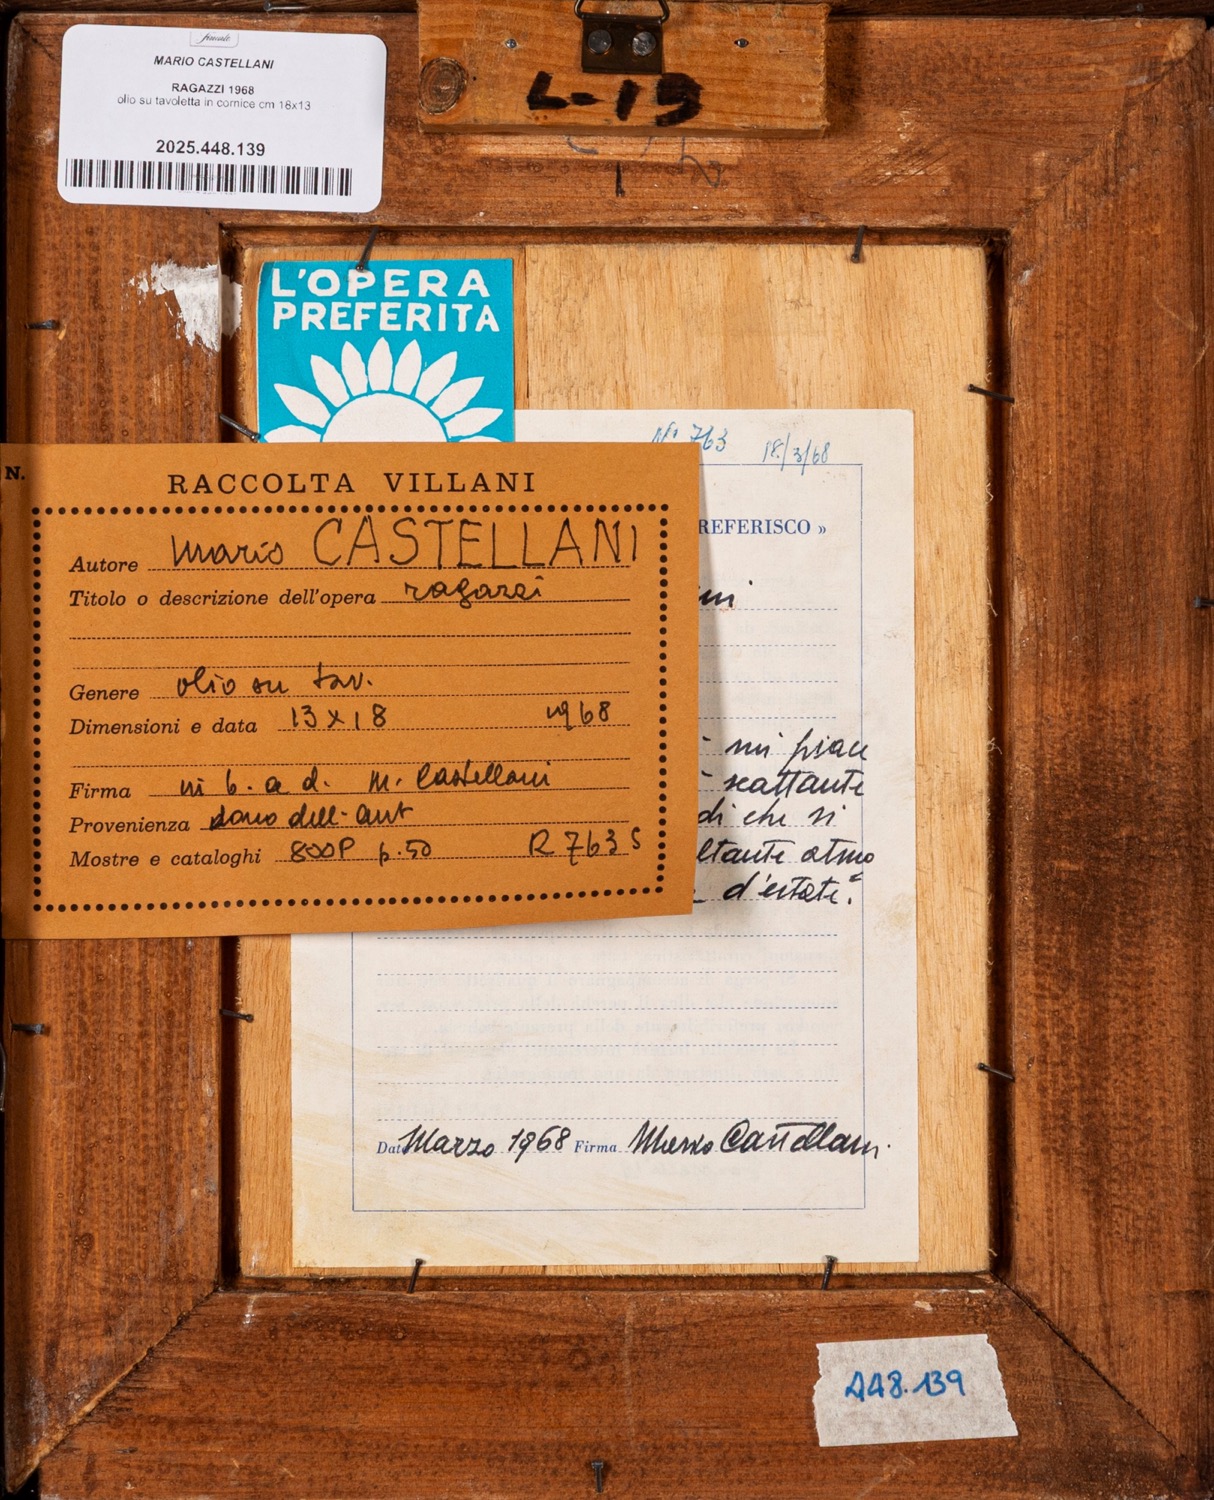 finarte
MARIO CASTELLANI
RAGAZZI 1968
olio su tavoletta in cornice cm 18x13
2025.448.139
L-19
L'OPERA
PREFERITA
N° 763 18/3/68
REFERISCO »
N.
RACCOLTA VILLANI
Autore Mario CASTELLANI
Titolo o descrizione dell'opera ragazzi
Genere olio su tav.
Dimensioni e data 13x18 1968
Firma in b. a d. M. Castellani
Provenienza dono dell'Aut
Mostre e cataloghi 800P p.50 R 763 S
mi piace
scattante
di che si
ltante atmo
d'estate."
Data Marzo 1968 Firma Mario Castellani
448.139